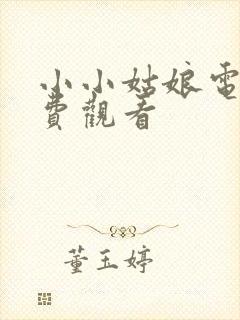 小小姑娘電
費觀看
董玉婷